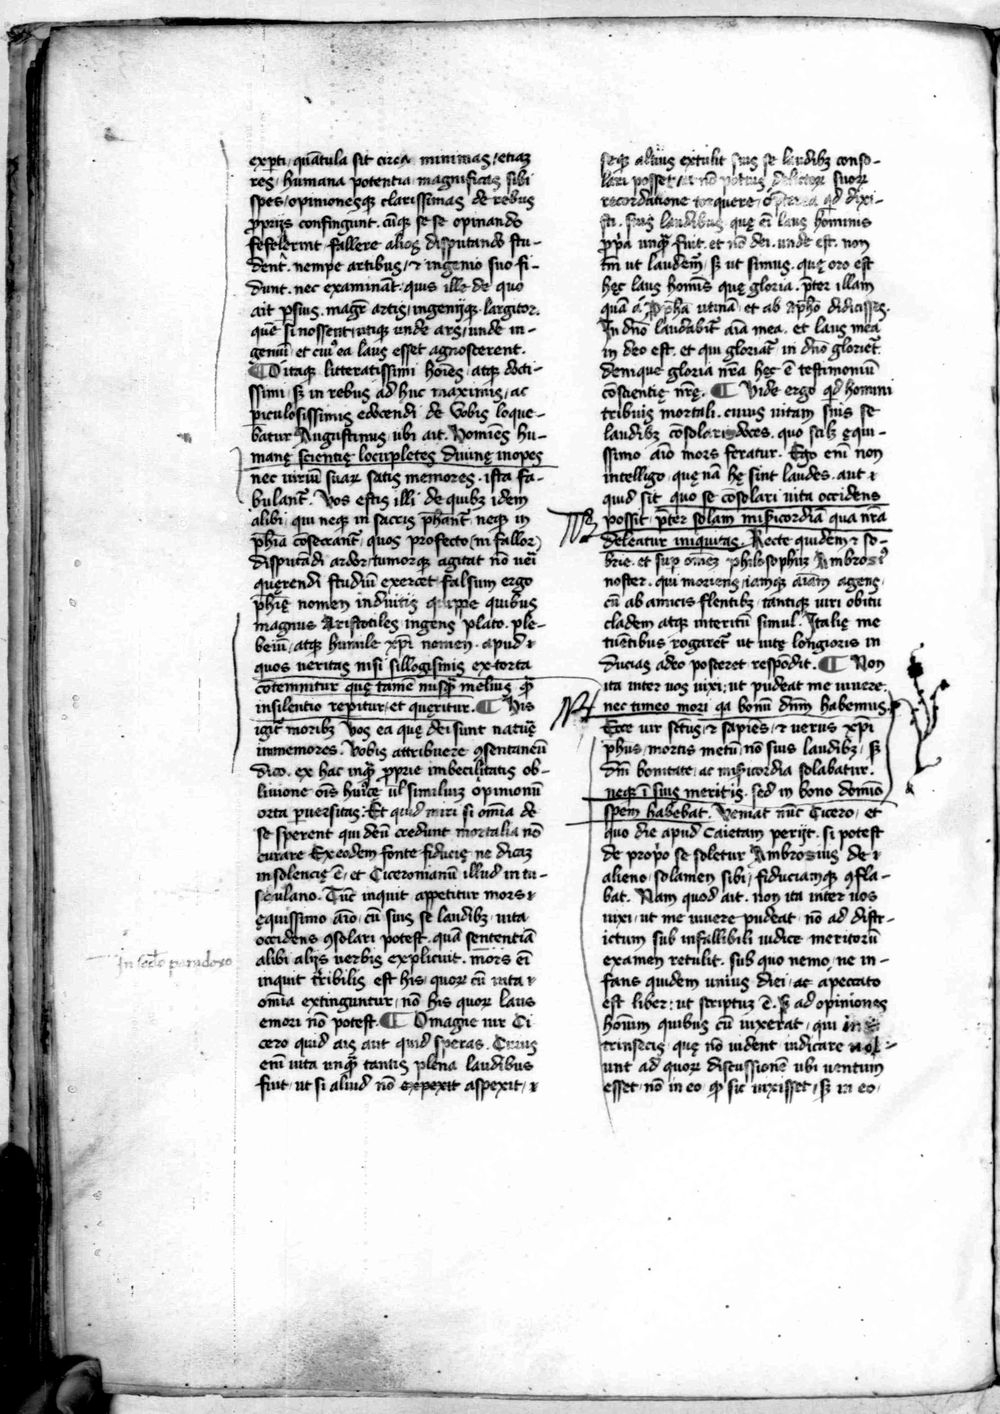 experti, quātula sit circa minimas, etiaz
res, humana potentia, magnificas sibi
spes, opinionesqz clarissimas de rebus
pprijs confingunt. cūqz se se opinando
fefelerint fallere alios disputando stu-
dent. nempe artibus, et ingenio suo fi-
dunt. nec examināt, quis ille de quo
ait psius. magr̄ artis, ingenijqz largitor.
quē si nossent, utiqz unde ars, unde in-
geniū, et cui9 ea laus esset agnoscerent.
¶ O itaqz litteratissimi hoīes, atqz docti-
ssimi, sz in rebus ad huc maximis, ac
piculosissimis edocendi de vobis loque-
batur Augustinus, ubi ait. Homiēs hu-
manę scientię locupletes divinę inopes
nec viriū suar satis memores. ista fa-
bulant̄. Vos estis illi de quibz idem
alibi, qui neqz in sacris phant̄, neqz in
phia cōsecrant̄, quos profecto (ni fallor)
disputādi ardor, tumorqz agitat nō veri
quęrendi studiū exercet, falsum ergo
phię nomen induitis quippe quibus
magnus Aristotiles, ingens plato. ple-
beiū, atqz humile xpi nomen. apud
quos veritas nisi sillogismis extorta
cōtemnitur quę tamē nusqz melius qz
in silentio repitur, et quęritur. ¶ His
igit̄ moribz vos ea quę dei sunt natuę
immemores. vobis attribuere 9sentaneū
dico. ex hac inqz pprie imbecillitatis ob-
livione oīs huice ul' similiuz opinionū
orta pversitas. Et quid miri si omīa de
se sperent qui deū credunt mortalia nō
curare Ex eodem fonte fiducię ne dicaz
insolencię ē, et Ciceronianū illud in tu-
sculano. Tūc inquit appetitur mors
ęquissimo aīo, cū suis se laudibz vita
occidens 9solari potest. quā sententiā
alibi alijs verbis explicuit. mors eī
inquit t̄ribilis est his, quor cū vita
omīa extinguntur, nō his quor laus
emori nō potest. ¶ O magne vir Ci
cero quid ais aut quid speras. Cuius
enī vita unqz tantis plena laudibus
fuit, ut si aliud nō expexit aspexit,
In lo paradoxo
seqz alijus extulit suis se laudibz conso-
lari posset, suor
recordatione torquere, qd dixi-
sti. suis laudibus quę eī laus hominis
ppa unqz fuit. et nō dei. unde est. non
tm̄ ut laudem̄, sz ut simus. quę oro est
hęc laus homīs quę gloria. pter illam
quā utinā, et ab apho didicisses.
In dnō laudabit̄ aīa mea. et laus mea
in deo est. et qui gloriat̄ in dnō gloriet̄.
denique gloria nr̄a hęc ē testimoniū
cōscientię nr̄ę. ¶ Vide ergo qd homini
tribuis mortali. cuius vitam suis se
laudibz cōsolari doces. quo scilz ęqui-
ssimo aīo mors feratur. Ego enī non
intelligo, quę nā hę sint laudes. aut
quid sit quo se cōsolari vita occidens
possit, pter solam misericordiā qua nr̄a
deleatur iniquitas. Recte quidem et so-
brie. et sup omēz philosophuz Ambrosi9
noster. qui moriens iamqz aīam agens,
cū ab amicis flentibz, tantiqz viri obitu
cladem atqz interitū simul. Italię me
tuētibus rogaret̄ ut vitę longioris in
ducias a deo posceret respōdit. ¶ Non
ita inter vos vixi, ut pudeat me vivere.
nec timeo mori qa bonū dnm̄ habemus.
Ecce vir sctus, et sapiēs, et verus xpi
phus, mortis metū, nō suis laudibz, sz
dm̄ bonitate, ac misericordia solabatur.
neqz ī suis meritis. sed in bono domīo
spem habebat. Veniat nūc Cicero, et
quo die apud Caietam perijt. si potest
de propo se soletur Ambrosius de
alieno, solamen sibi, fiduciamqz 9fla-
bat. Nam quod ait. non ita inter vos
vixi, ut me vivere pudeat, nō ad distr-
ictum sub infallibili iudice meritorū
examen retulit. sub quo nemo, ne in-
fans quidem unius diei, ac a peccato
est liber, ut scriptuz ē. sz ad opiniones
homīum quibus cū vixerat, qui in
trinsecis, quę nō vident, iudicare nol-
unt ad quor discussionē ubi ventum
esset, nō in eo, qz sic vixisset, sz in eo,